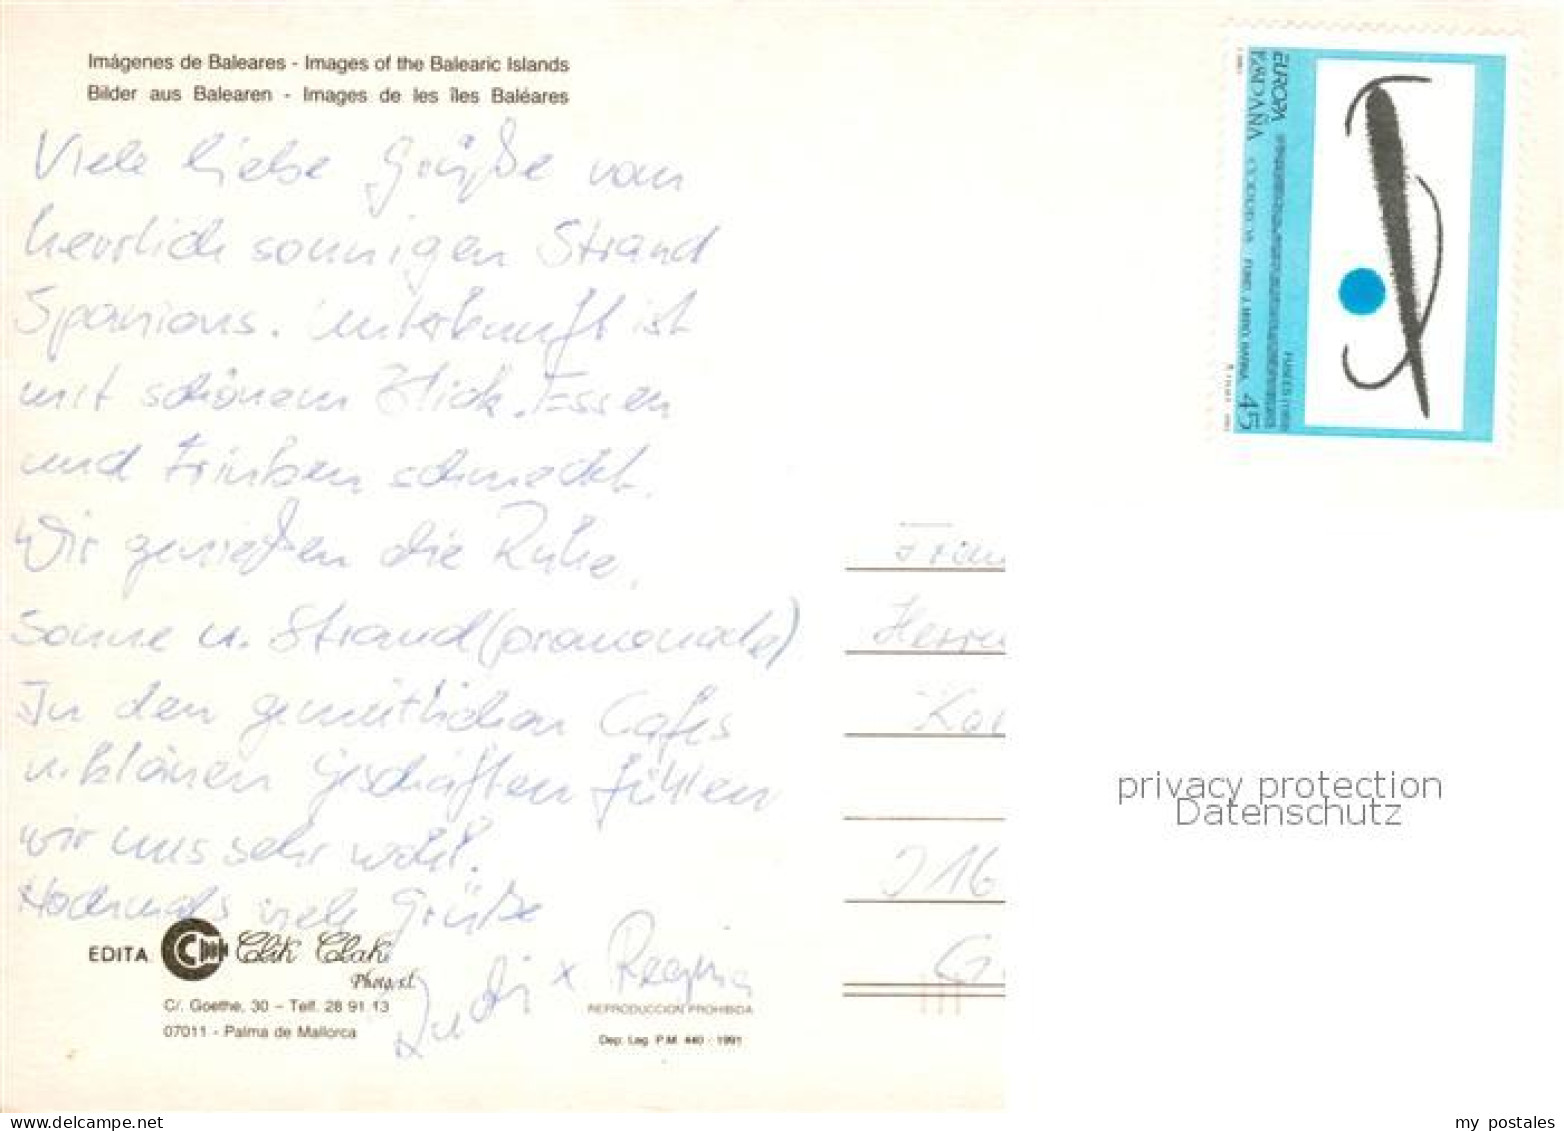 Imágenes de Baleares - Images of the Balearic Islands
Bilder aus Balearen - Images de les îles Baléares
Viele liebe Grüße vom
herrlich sonnigen Strand
Spaniens. Unterkunft ist
mit schönem Blick. Essen
und Trinken schmeckt.
Wir genießen die Ruhe,
Sonne u. Strand(promenade)
In den gemütlichen Cafes
u. kleinen Geschäften fühlen
wir uns sehr wohl.
Nochmals viele Grüße
Rudi x Regina
EDITA Clik Clak
Photo, s.l.
C/. Goethe, 30 - Telf. 28 91 13
07011 - Palma de Mallorca
REPRODUCCION PROHIBIDA
Dep: Leg. P.M. 440 - 1991
EUROPA
ESPAÑA
45
Herrn
J 16
G
privacy protection
Datenschutz
www.delcampe.net
my_postales